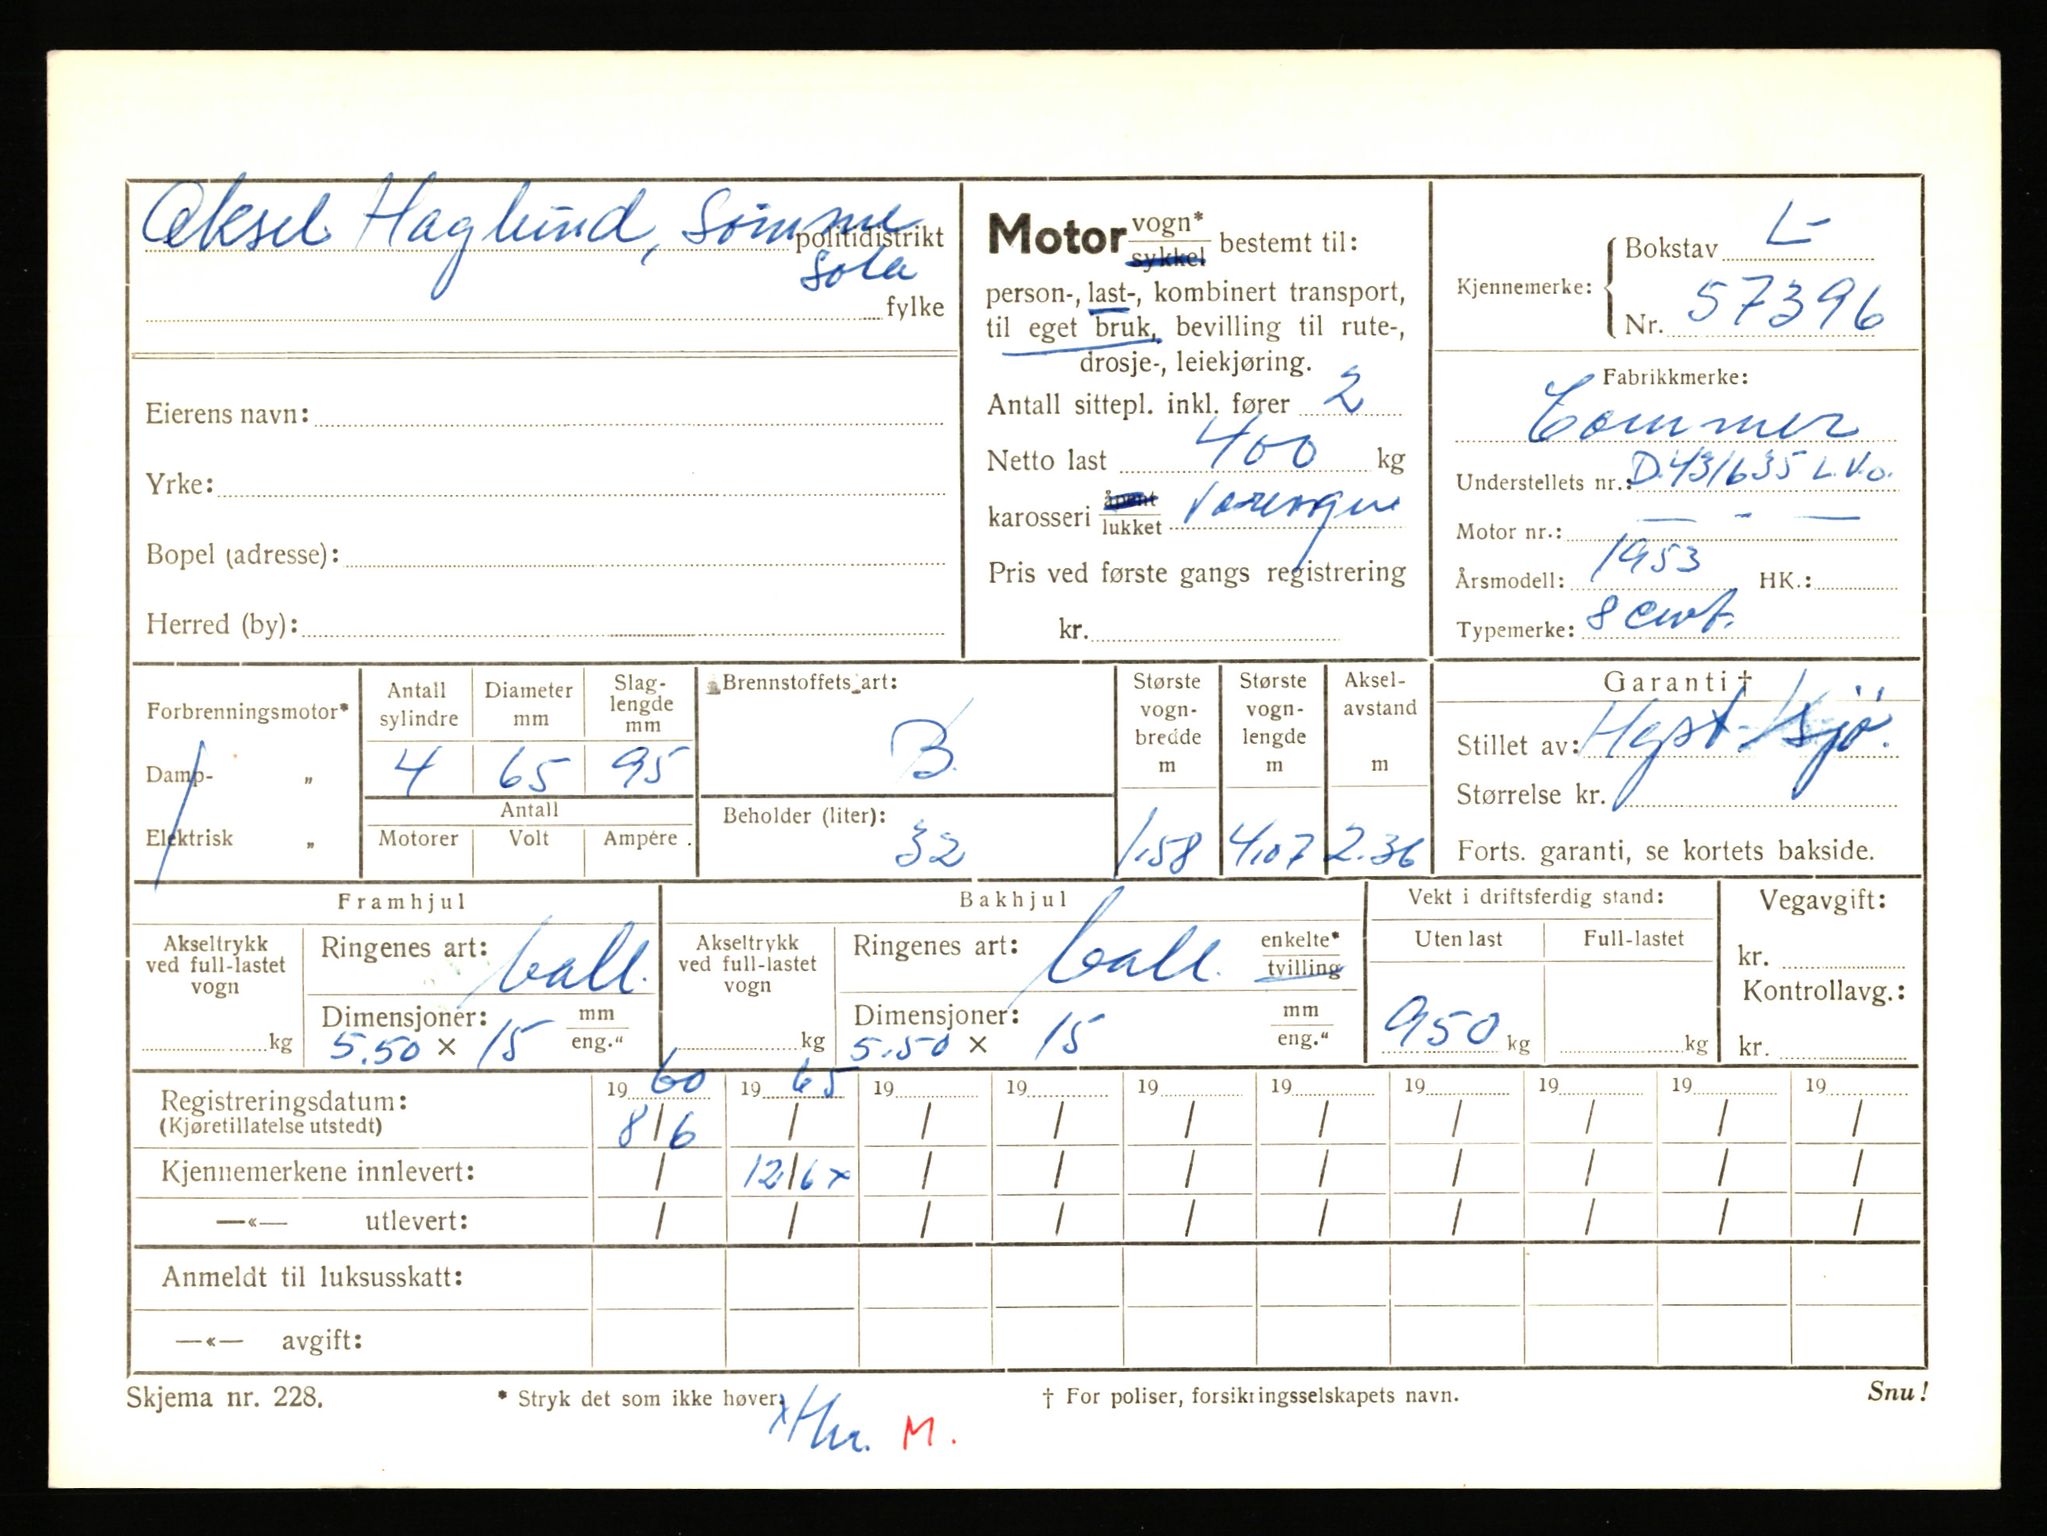 Aksel Haglund, Sømme
politidistrikt
Sola
fylke
Eierens navn:
Yrke:
Bopel (adresse):
Herred (by):
Motor vogn* sykkel bestemt til:
person-, last-, kombinert transport,
til eget bruk, bevilling til rute-,
drosje-, leiekjøring.
Antall sittepl. inkl. fører 2
Netto last 400 kg
karosseri åpent lukket Varevogn
Pris ved første gangs registrering
kr.
Kjennemerke: Bokstav L-
Nr. 57396
Fabrikkmerke:
Commer
Understellets nr.: D.431635 L.V.O.
Motor nr.: — - —
Årsmodell: 1953 HK.:
Typemerke: 8 cwt.
Forbrenningsmotor*
Damp- „
Elektrisk „
Antall sylindre
Diameter mm
Slag-lengde mm
4 65 95
Antall
Motorer Volt Ampére.
Brennstoffets art:
B.
Beholder (liter):
32
Største vogn-bredde m
1.58
Største vogn-lengde m
4.07
Aksel-avstand m
2.36
Garanti †
Stillet av:
Størrelse kr.
Forts. garanti, se kortets bakside.
Framhjul
Akseltrykk ved full-lastet vogn
kg
Ringenes art: ball.
Dimensjoner: mm
5.50 × 15 eng."
Bakhjul
Akseltrykk ved full-lastet vogn
kg
Ringenes art: ball. enkelte* tvilling
Dimensjoner: mm
5.50 × 15 eng."
Vekt i driftsferdig stand:
Uten last Full-lastet
950 kg kg
Vegavgift:
kr.
Kontrollavg.:
kr.
19 60 19 65 19 19 19 19 19 19 19 19
Registreringsdatum:
(Kjøretillatelse utstedt) 8/6 / / / / / / / / /
Kjennemerkene innlevert: / 12/6 x / / / / / / / /
—«— utlevert: / / / / / / / / / /
Anmeldt til luksusskatt:
—«— avgift:
Skjema nr. 228. * Stryk det som ikke høver. † For poliser, forsikringsselskapets navn. Snu!
M.